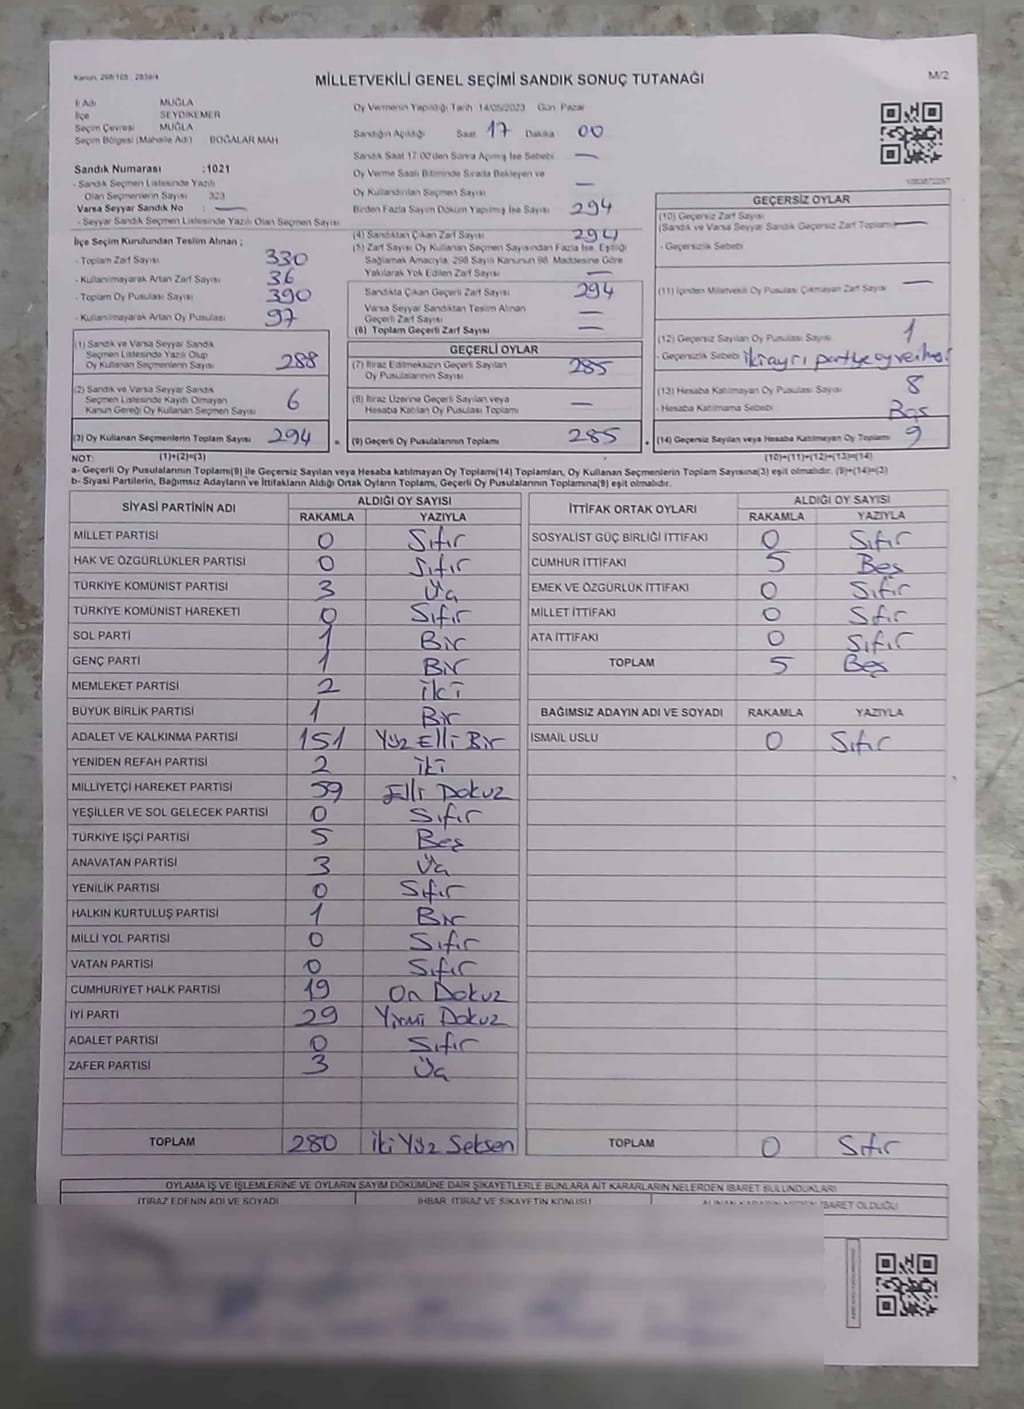 Kanun: 298/105 , 2839/4
MİLLETVEKİLİ GENEL SEÇİMİ SANDIK SONUÇ TUTANAĞI
M/2
İl Adı MUĞLA
İlçe SEYDİKEMER
Seçim Çevresi MUĞLA
Seçim Bölgesi (Mahalle Adı) BOĞALAR MAH
Sandık Numarası :1021
- Sandık Seçmen Listesinde Yazılı
Olan Seçmenlerin Sayısı 323
Varsa Seyyar Sandık No : —
- Seyyar Sandık Seçmen Listesinde Yazılı Olan Seçmen Sayısı
İlçe Seçim Kurulundan Teslim Alınan ;
- Toplam Zarf Sayısı 330
- Kullanılmayarak Artan Zarf Sayısı 36
- Toplam Oy Pusulası Sayısı 390
- Kullanılmayarak Artan Oy Pusulası 97
(1) Sandık ve Varsa Seyyar Sandık
Seçmen Listesinde Yazılı Olup
Oy Kullanan Seçmenlerin Sayısı 288
(2) Sandık ve Varsa Seyyar Sandık
Seçmen Listesinde Kaydı Olmayan
Kanun Gereği Oy Kullanan Seçmen Sayısı 6
(3) Oy Kullanan Seçmenlerin Toplam Sayısı 294
Oy Vermenin Yapıldığı Tarih 14/05/2023 Gün: Pazar
Sandığın Açıldığı Saat 17 Dakika 00
Sandık Saat 17:00'den Sonra Açılmış İse Sebebi —
Oy Verme Saati Bitiminde Sırada Bekleyen ve
Oy Kullandırılan Seçmen Sayısı —
Birden Fazla Sayım Döküm Yapılmış İse Sayısı 294
(4) Sandıktan Çıkan Zarf Sayısı 294
(5) Zarf Sayısı Oy Kullanan Seçmen Sayısından Fazla İse, Eşitliği
Sağlamak Amacıyla, 298 Sayılı Kanunun 98. Maddesine Göre
Yakılarak Yok Edilen Zarf Sayısı —
Sandıkta Çıkan Geçerli Zarf Sayısı 294
Varsa Seyyar Sandıktan Teslim Alınan
Geçerli Zarf Sayısı —
(6) Toplam Geçerli Zarf Sayısı —
GEÇERLİ OYLAR
(7) İtiraz Edilmeksizin Geçerli Sayılan
Oy Pusulalarının Sayısı 285
(8) İtiraz Üzerine Geçerli Sayılan veya
Hesaba Katılan Oy Pusulası Toplamı —
= (9) Geçerli Oy Pusulalarının Toplamı 285
GEÇERSİZ OYLAR
(10) Geçersiz Zarf Sayısı
(Sandık ve Varsa Seyyar Sandık Geçersiz Zarf Toplamı) —
- Geçersizlik Sebebi
(11) İçinden Milletvekili Oy Pusulası Çıkmayan Zarf Sayısı —
(12) Geçersiz Sayılan Oy Pusulası Sayısı 1
- Geçersizlik Sebebi iki ayrı partiye oy verilmesi
(13) Hesaba Katılmayan Oy Pusulası Sayısı 8
- Hesaba Katılmama Sebebi Boş
(14) Geçersiz Sayılan veya Hesaba Katılmayan Oy Toplamı 9
NOT: (1)+(2)=(3) (10)+(11)+(12)+(13)=(14)
a- Geçerli Oy Pusulalarının Toplamı(9) ile Geçersiz Sayılan veya Hesaba katılmayan Oy Toplamı(14) Toplamları, Oy Kullanan Seçmenlerin Toplam Sayısına(3) eşit olmalıdır. (9)+(14)=(3)
b- Siyasi Partilerin, Bağımsız Adayların ve İttifakların Aldığı Ortak Oyların Toplamı, Geçerli Oy Pusulalarının Toplamına(9) eşit olmalıdır.
SİYASİ PARTİNİN ADI ALDIĞI OY SAYISI
RAKAMLA YAZIYLA
MİLLET PARTİSİ 0 Sıfır
HAK VE ÖZGÜRLÜKLER PARTİSİ 0 Sıfır
TÜRKİYE KOMÜNİST PARTİSİ 3 Üç
TÜRKİYE KOMÜNİST HAREKETİ 0 Sıfır
SOL PARTİ 1 Bir
GENÇ PARTİ 1 Bir
MEMLEKET PARTİSİ 2 iki
BÜYÜK BİRLİK PARTİSİ 1 Bir
ADALET VE KALKINMA PARTİSİ 151 Yüz Elli Bir
YENİDEN REFAH PARTİSİ 2 iki
MİLLİYETÇİ HAREKET PARTİSİ 59 Elli Dokuz
YEŞİLLER VE SOL GELECEK PARTİSİ 0 Sıfır
TÜRKİYE İŞÇİ PARTİSİ 5 Beş
ANAVATAN PARTİSİ 3 Üç
YENİLİK PARTİSİ 0 Sıfır
HALKIN KURTULUŞ PARTİSİ 1 Bir
MİLLİ YOL PARTİSİ 0 Sıfır
VATAN PARTİSİ 0 Sıfır
CUMHURİYET HALK PARTİSİ 19 On Dokuz
İYİ PARTİ 29 Yirmi Dokuz
ADALET PARTİSİ 0 Sıfır
ZAFER PARTİSİ 3 Üç
TOPLAM 280 iki Yüz Seksen
İTTİFAK ORTAK OYLARI ALDIĞI OY SAYISI
RAKAMLA YAZIYLA
SOSYALİST GÜÇ BİRLİĞİ İTTİFAKI 0 Sıfır
CUMHUR İTTİFAKI 5 Beş
EMEK VE ÖZGÜRLÜK İTTİFAKI 0 Sıfır
MİLLET İTTİFAKI 0 Sıfır
ATA İTTİFAKI 0 Sıfır
TOPLAM 5 Beş
BAĞIMSIZ ADAYIN ADI VE SOYADI RAKAMLA YAZIYLA
İSMAİL USLU 0 Sıfır
TOPLAM 0 Sıfır
OYLAMA İŞ VE İŞLEMLERİNE VE OYLARIN SAYIM DÖKÜMÜNE DAİR ŞİKAYETLERLE BUNLARA AİT KARARLARIN NELERDEN İBARET BULUNDUKLARI
İTİRAZ EDENİN ADI VE SOYADI İHBAR, İTİRAZ VE ŞİKAYETİN KONUSU
İBARET OLDUĞU